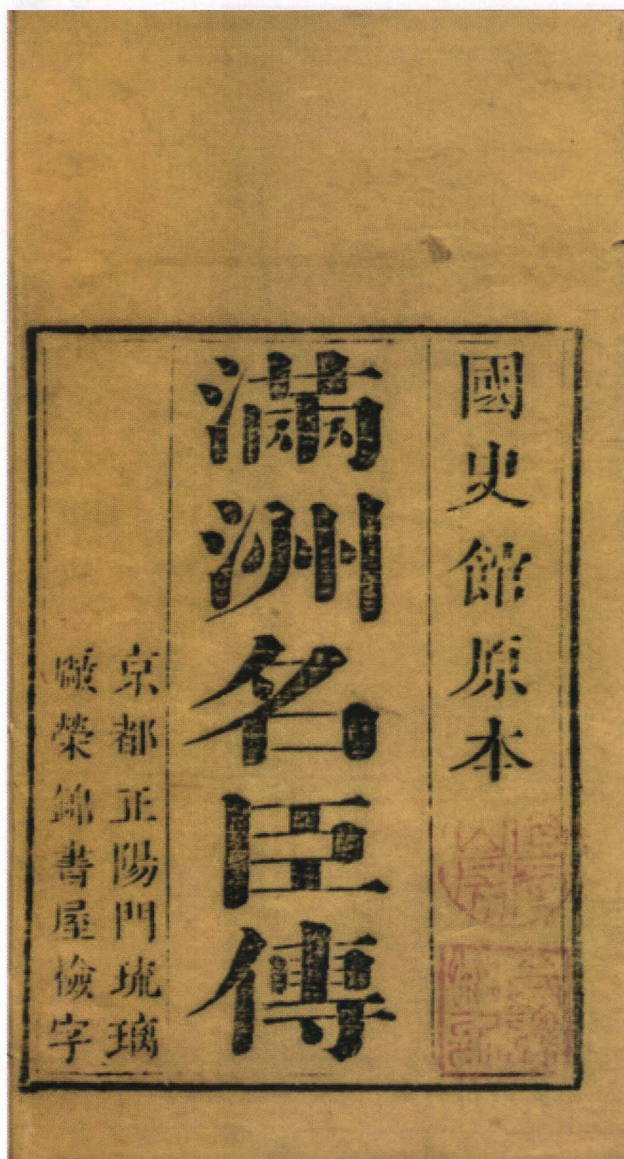 國史館原本
滿洲名臣傳
京都正陽門琉璃
廠榮錦書屋檢字